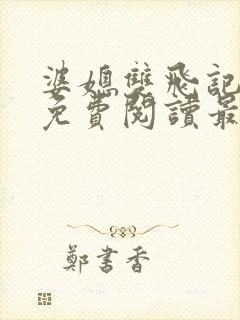 婆媳雙飛記
免費閱讀最
鄭書香